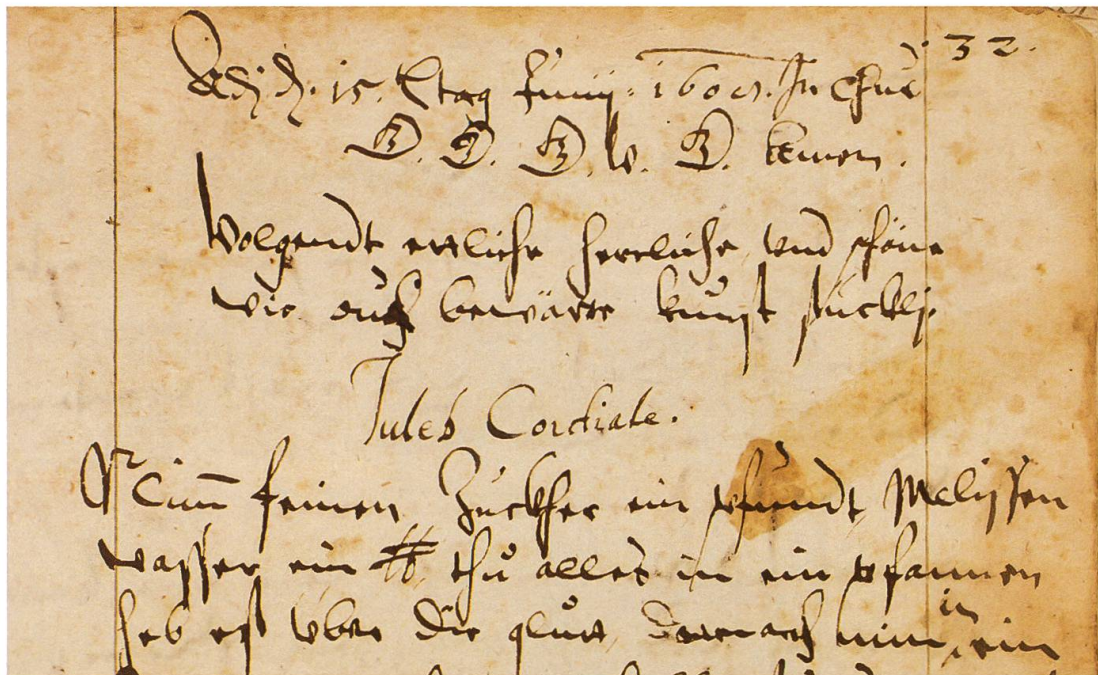 32.
Adj. d. 15. tag Junij. 160 In Chur
G. G. G. v. G. Amen.
Volgendt ettliche herrliche, vnd schöne
wie auch bewärte kunst stuckhlj.
Juleb Cordiale.
Nim̄ feinen Zuckher ein pfundt, Melissen
wasser ein ℔, thů alles in ein pfannen
heb eß vber die glutt, darnach nim in, ein